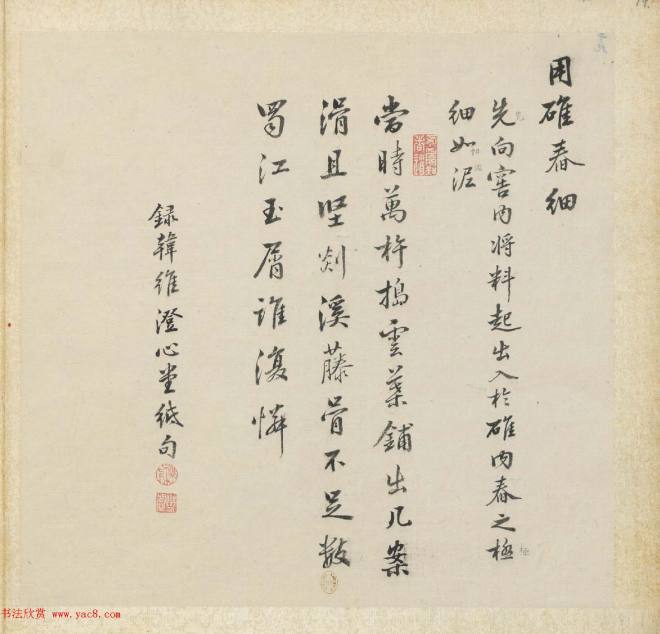 用碓舂细
先向窖内将料起出入於碓内舂之極
细如泥
當時萬杵搗雲葉鋪出几案
滑且堅剡溪藤骨不足数
蜀江玉屑誰復憐
録韓維澄心堂紙句
书法欣赏 www.yac8.com